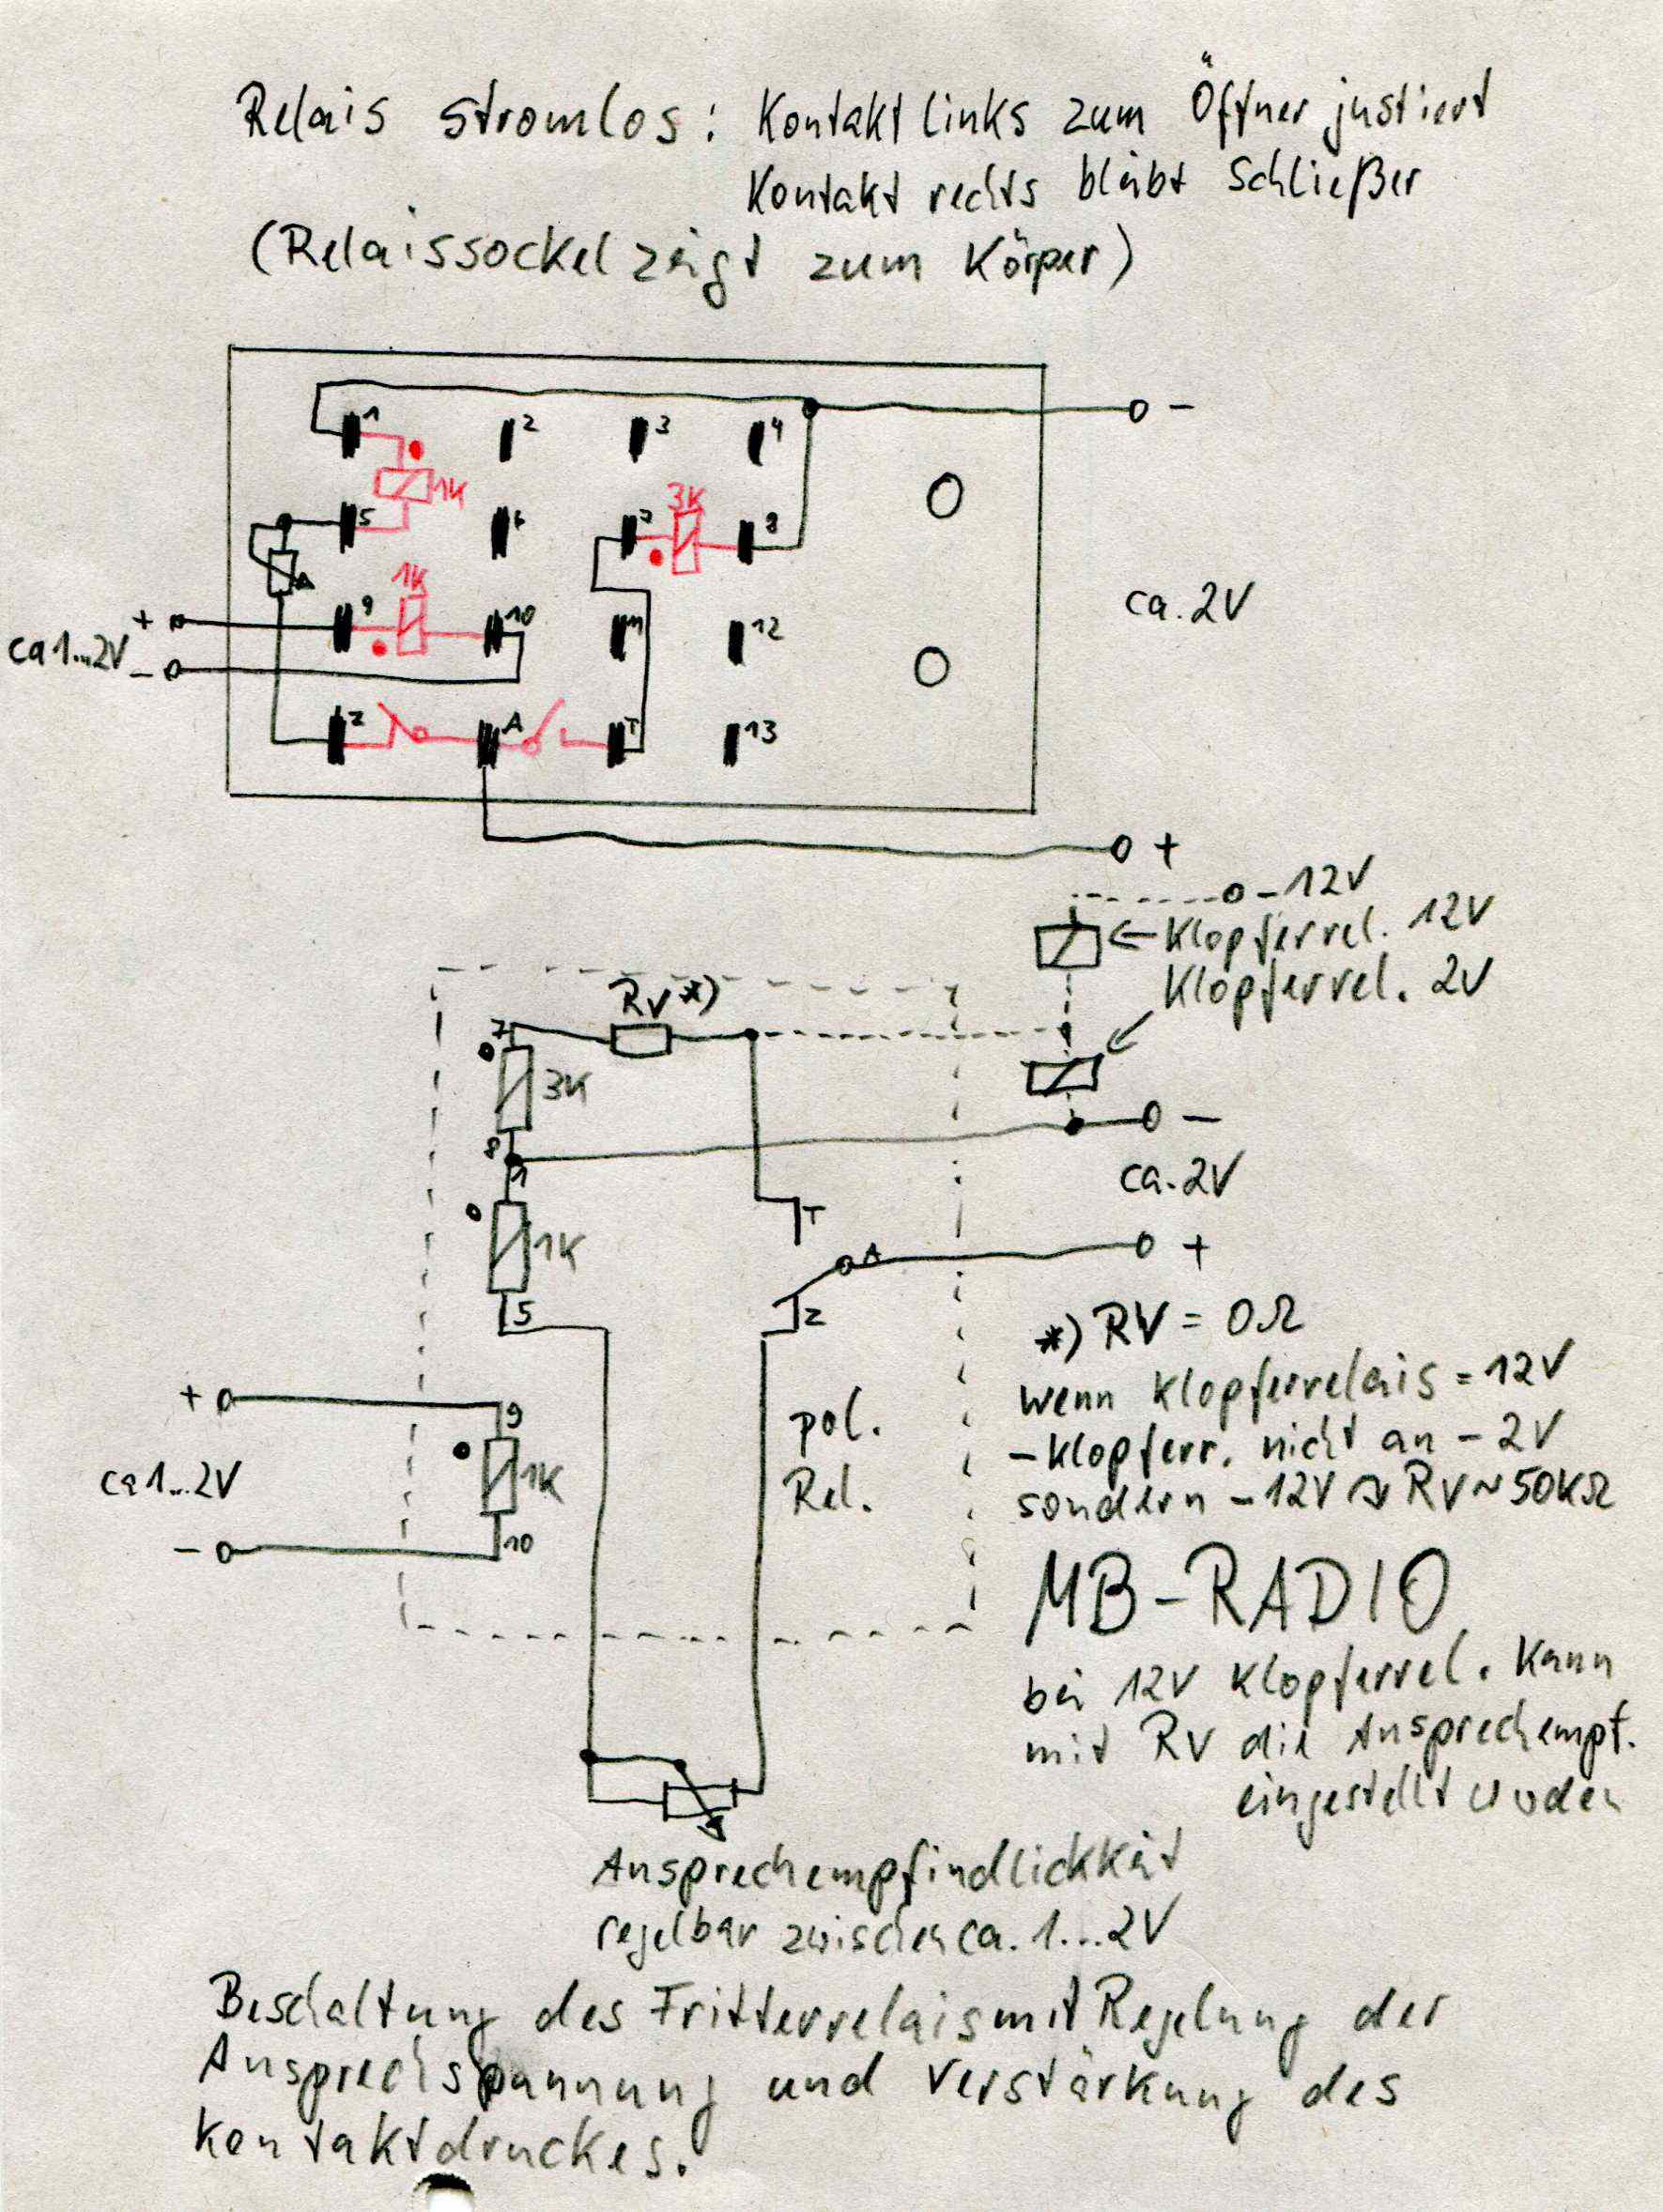 Relais stromlos: Kontakt links zum Öffner justiert
Kontakt rechts bleibt Schließer
(Relaissockel zeigt zum Körper)
1 2 3 4
1K
3K
5 6 7 8
1K
+ 9 10 11 12
ca 1...2V
−
ca. 2V
Z A T 13
−
+
−12V
Klopferrel. 12V
Klopferrel. 2V
RV *)
7
3K
8
1
−
ca. 2V
1K
5
T
A
Z
+
*) RV = 0Ω
wenn Klopferrelais = 12V
−Klopferr. nicht an −2V
sondern −12V RV ~ 50KΩ
+
9
ca 1...2V
1K
10
−
pol.
Rel.
MB-RADIO
bei 12V Klopferrel. kann
mit RV die Ansprechempf.
eingestellt werden
Ansprechempfindlickkeit
regelbar zwischen ca. 1...2V
Beschaltung des Fritterrelais mit Regelung der
Ansprechspannung und Verstärkung des
Kontaktdruckes.